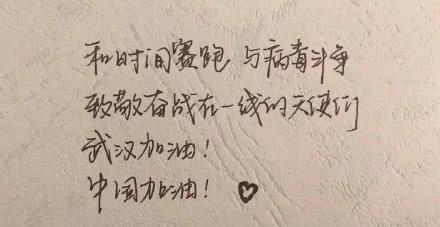 和时间赛跑 与病毒斗争
致敬奋战在一线的天使们
武汉加油！
中国加油！ ♡